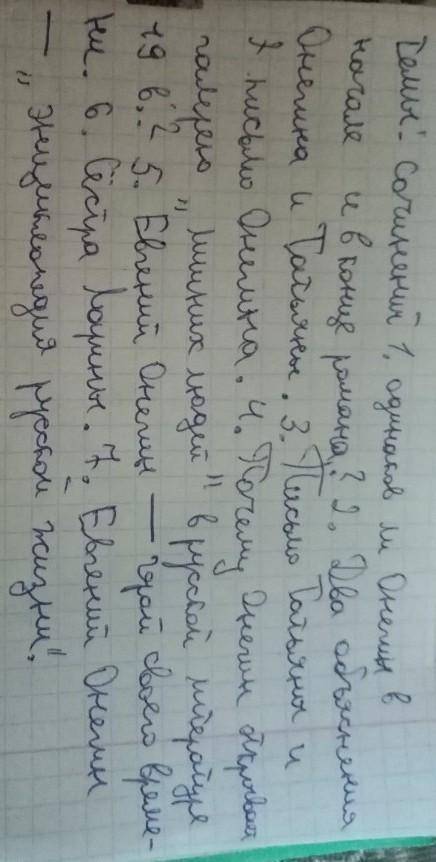 Темы: Сочинений 1. одинаков ли Онегин в
начале и в конце романа? 2. Два объяснения
Онегина и Татьяны. 3. Письмо Татьяны и
письмо Онегина. 4. Почему Онегин открывает
галерею "лишних людей" в русской литературе
19 в.? 5. Евгений Онегин — герой своего време-
ни. 6. Сёстра Ларины. 7. Евгений Онегин
— "энциклопедия русской жизни".